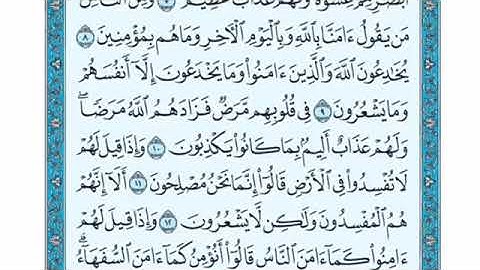 أَبْصَٰرِهِمْ غِشَٰوَةٌ وَلَهُمْ عَذَابٌ عَظِيمٌ ٧ وَمِنَ ٱلنَّاسِ
مَن يَقُولُ ءَامَنَّا بِٱللَّهِ وَبِٱلْيَوْمِ ٱلْءَاخِرِ وَمَا هُم بِمُؤْمِنِينَ ٨
يُخَٰدِعُونَ ٱللَّهَ وَٱلَّذِينَ ءَامَنُوا۟ وَمَا يَخْدَعُونَ إِلَّآ أَنفُسَهُمْ
وَمَا يَشْعُرُونَ ٩ فِى قُلُوبِهِم مَّرَضٌ فَزَادَهُمُ ٱللَّهُ مَرَضًا ۖ
وَلَهُمْ عَذَابٌ أَلِيمٌۢ بِمَا كَانُوا۟ يَكْذِبُونَ ١٠ وَإِذَا قِيلَ لَهُمْ
لَا تُفْسِدُوا۟ فِى ٱلْأَرْضِ قَالُوٓا۟ إِنَّمَا نَحْنُ مُصْلِحُونَ ١١ أَلَآ إِنَّهُمْ
هُمُ ٱلْمُفْسِدُونَ وَلَٰكِن لَّا يَشْعُرُونَ ١٢ وَإِذَا قِيلَ لَهُمْ
ءَامِنُوا۟ كَمَآ ءَامَنَ ٱلنَّاسُ قَالُوٓا۟ أَنُؤْمِنُ كَمَآ ءَامَنَ ٱلسُّفَهَآءُ ۗ